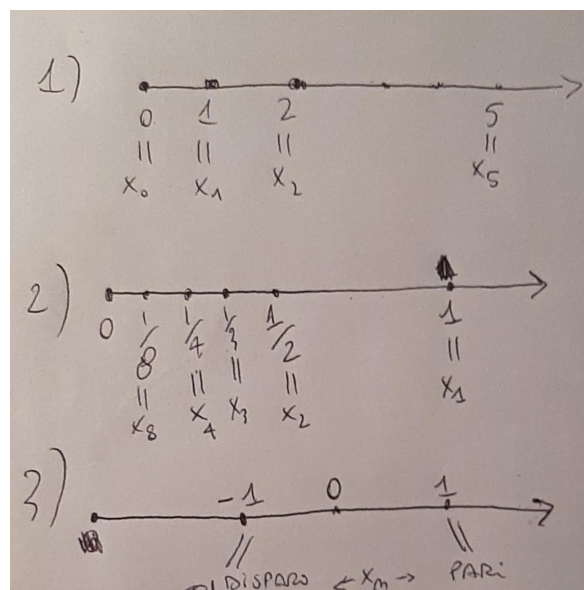 1)
0 1 2 5
|| || || ||
x₀ x₁ x₂ x₅
2)
0 1/8 1/4 1/3 1/2 1
|| || || || ||
x₈ x₄ x₃ x₂ x₁
3)
-1 0 1
|| ||
DISPARO ← xₙ → PARI